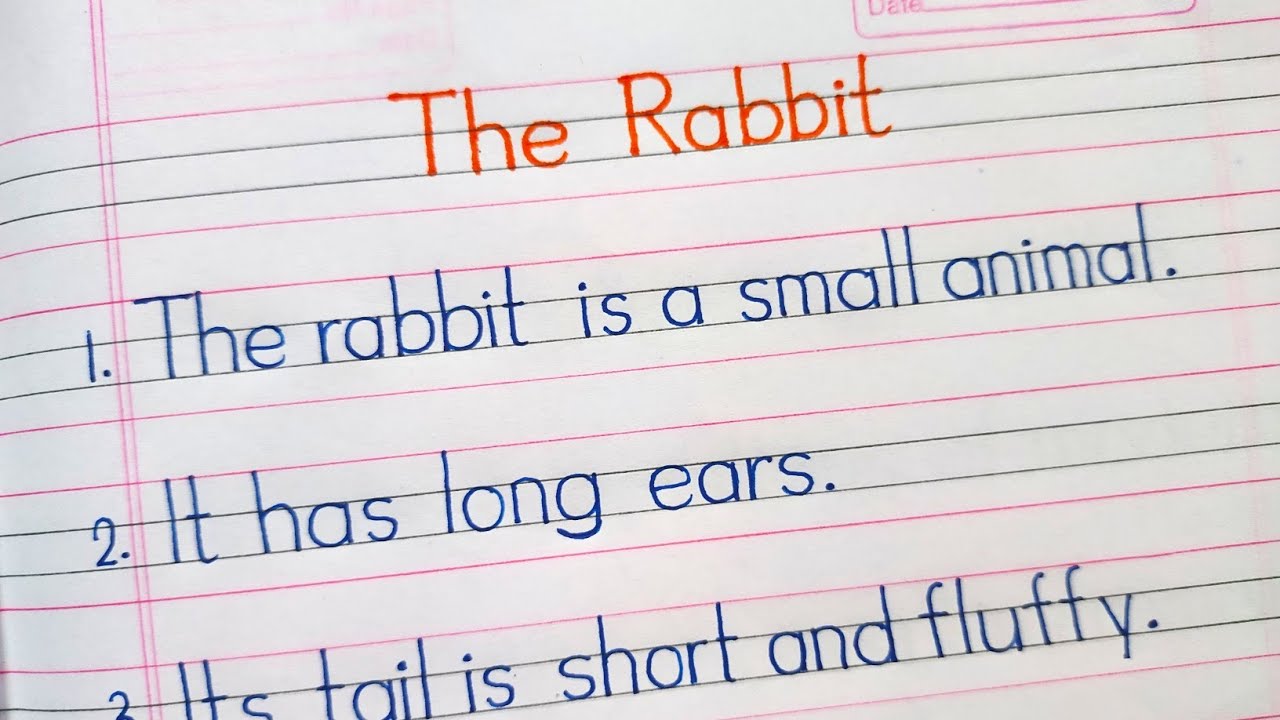 Date
The Rabbit
1. The rabbit is a small animal.
2. It has long ears.
3. Its tail is short and fluffy.